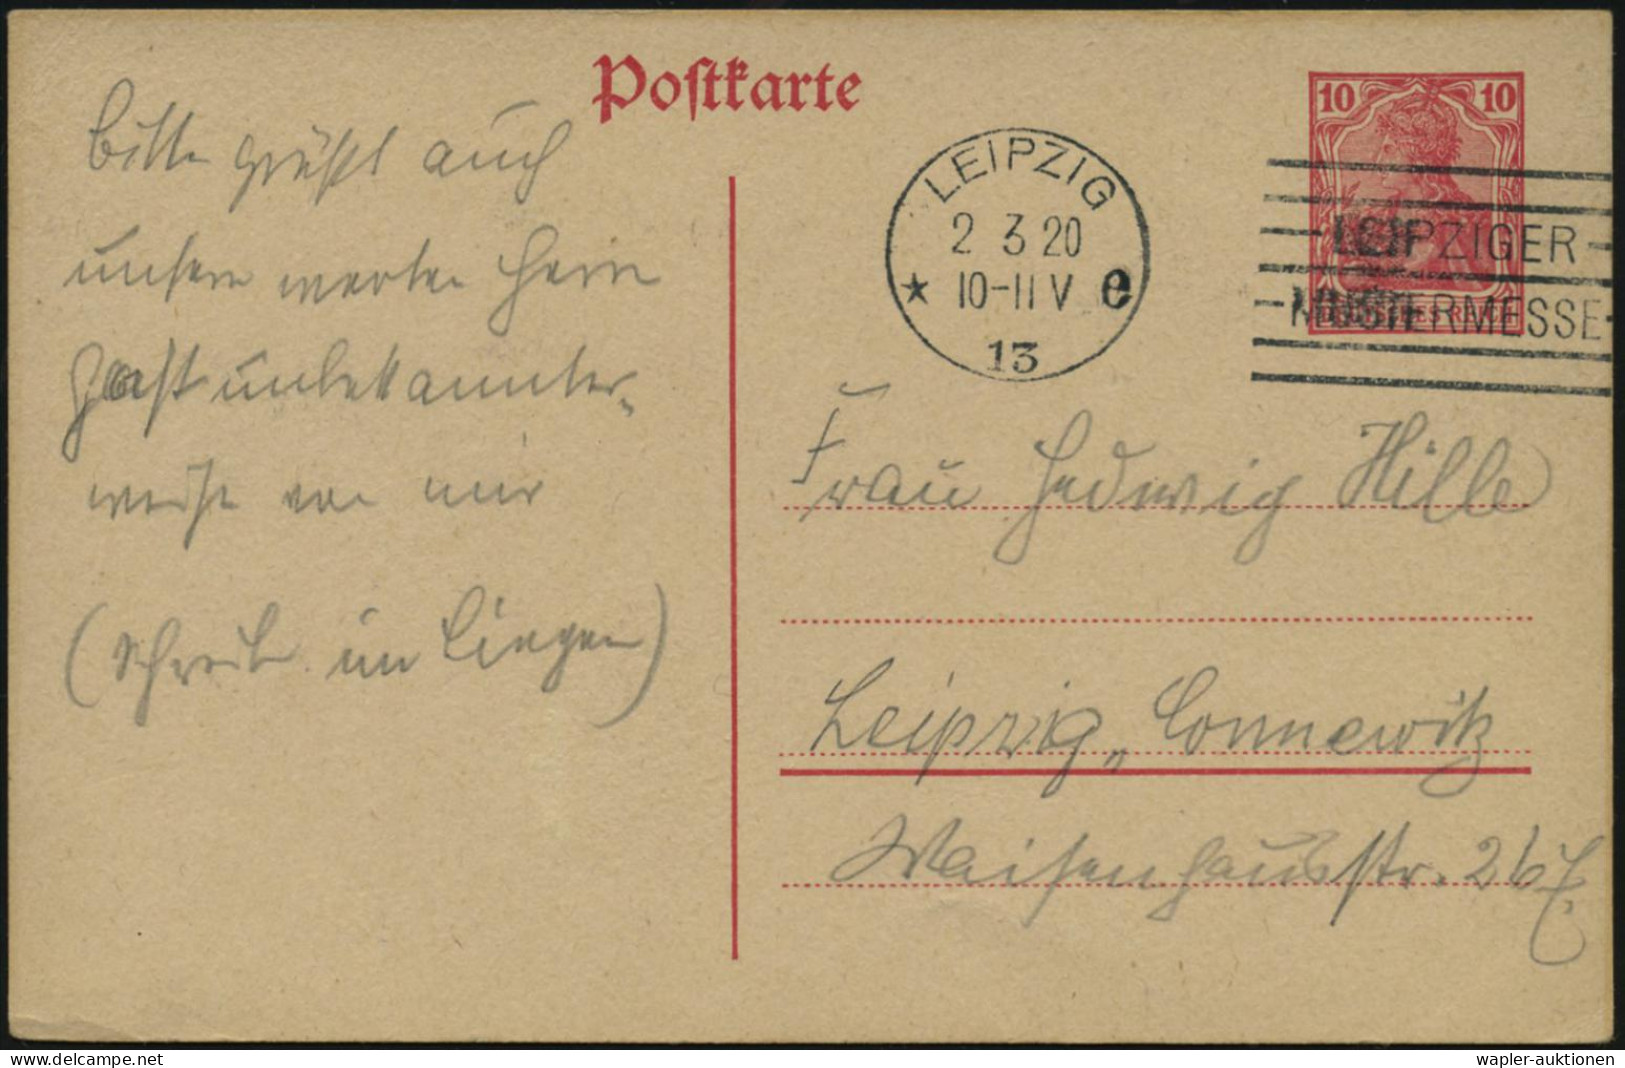 Postkarte
Bitte grüßt auch
unsern werten Herrn
Gast unbekannter-
weise von mir
(Schreibe im Liegen)
10 10
DEUTSCHES REICH
LEIPZIG
2 3 20
10-11 V e
13
LEIPZIGER
MUSTERMESSE
Frau Hedwig Hille
Leipzig-Connewitz
Waisenhausstr. 26
delcampe.net
wapler-auktionen